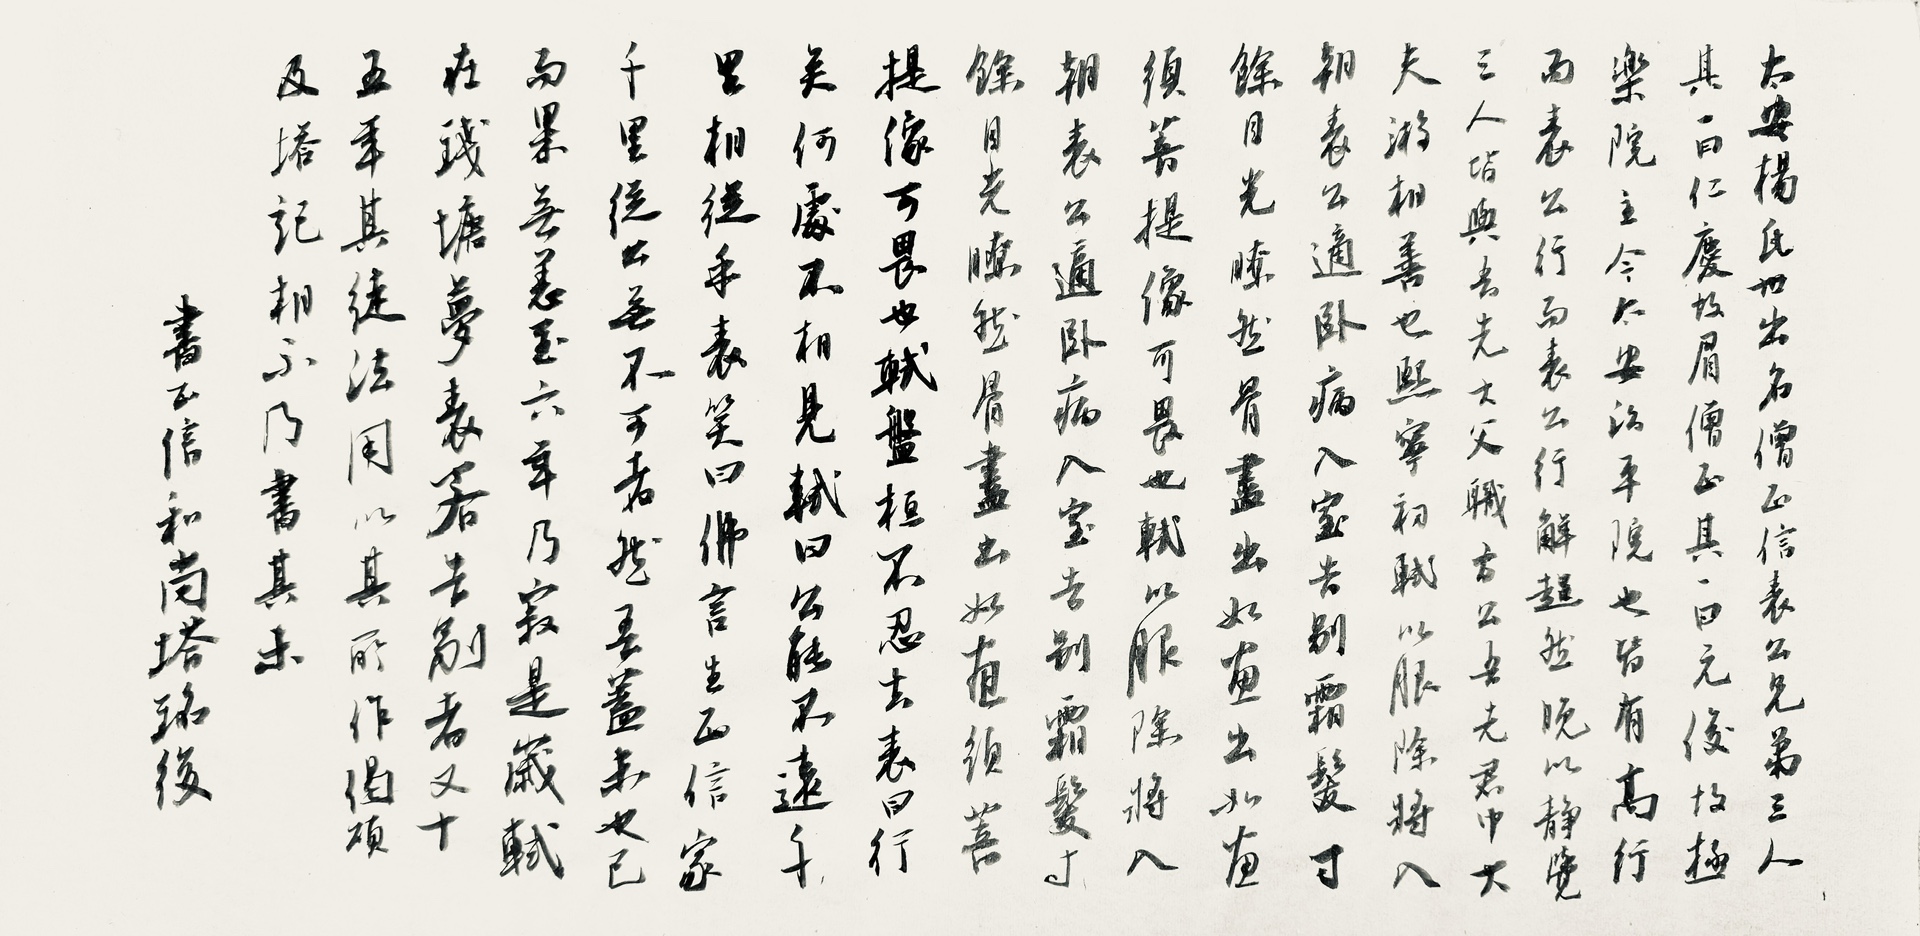 太安楊氏世出名僧正信表公兄弟三人
其一曰仁慶故眉僧正其一曰元俊故極
樂院主今太安治平院也皆有高行
而表公行而表公行解超然晚以静覺
三人皆與吾先大父職方公吾先君中大
夫游相善也熙寧初軾以服除將入
朝表公適卧病入室告别霜髮寸
餘目光瞭然骨盡出如畫出如畫
須菩提像可畏也軾以服除將入
朝表公適卧病入室告别霜髮寸
餘目光瞭然骨盡出如畫須菩
提像可畏也軾盤桓不忍去表曰行
矣何處不相見軾曰公能不遠千
里相從乎表笑曰佛言生正信家
千里從公無不可者然吾蓋未也已
而果無恙至六年乃寂是歲軾
在錢塘夢表若告别者又十
五年其徒法用以其所作偈頌
及塔記相示乃書其末
書正信和尚塔銘後